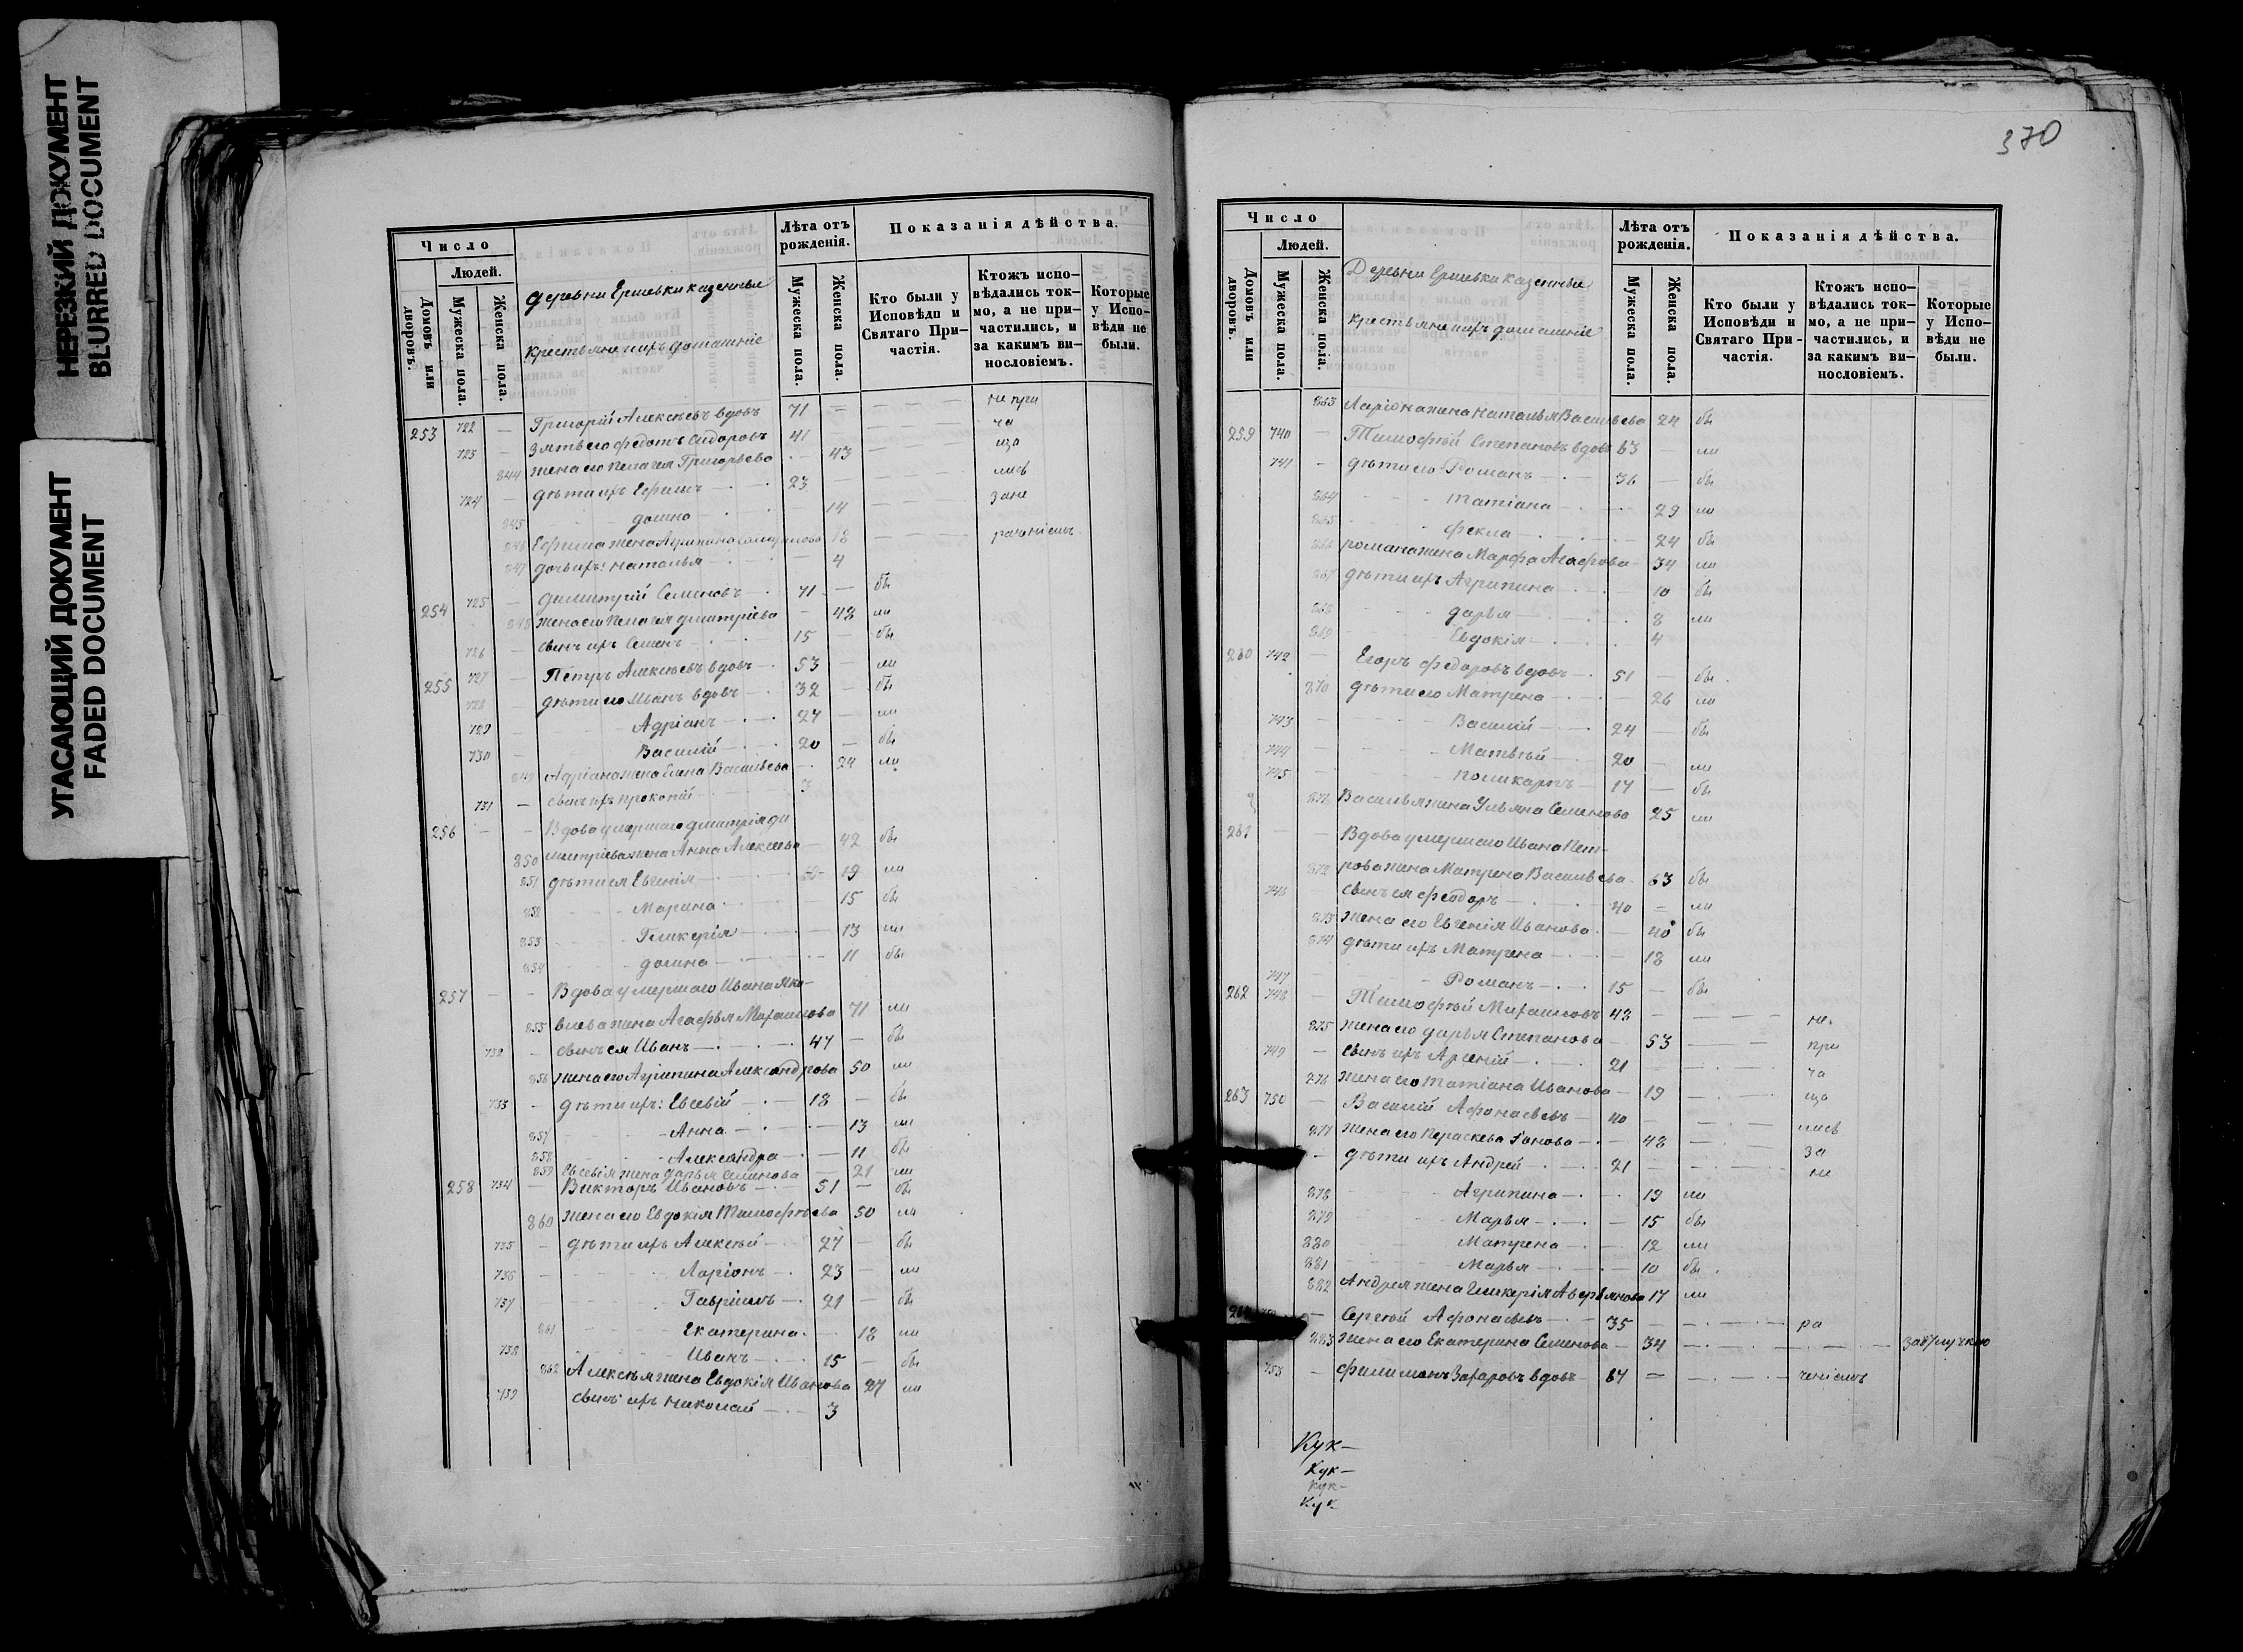 НЕРЕЗКИЙ ДОКУМЕНТ
BLURRED DOCUMENT
УГАСАЮЩИЙ ДОКУМЕНТ
FADED DOCUMENT
Число
Людей.
Домовъ или дворовъ.
Мужеска пола.
Женска пола.
деревни Ершевки казенные
крестьяне и ихъ домашніе
Лѣта отъ рожденія.
Мужеска пола.
Женска пола.
Показанія дѣйства.
Кто были у Исповѣди и Святаго При-частія.
Ктожъ испо-вѣдались ток-мо, а не при-частились, и за какимъ ви-нословіемъ.
Которые у Испо-вѣди не были.
253 722 — Григорій Алексѣевъ вдовъ 71 — не при
723 — Зять его Федотъ Сидоровъ 41 ча
844 жена его Пелагея Григорьева 43 ща
724 — дѣти ихъ Ефимъ 23 лись
845 домна 14 за не
846 Ефима жена Агрипина 18
847 дочь ихъ: Наталья 4
254 725 — Димитрій Семеновъ 71 — бы
848 жена его Пелагея Дмитріева — 48 ли
726 — сынъ ихъ Семенъ 15 — бы
255 727 — Петръ Алексѣевъ вдовъ 53 — ли
728 — дѣти его Иванъ вдовъ 32 — бы
729 Адріанъ 27 — ли
730 Василій 20 — бы
849 Адріана жена Елена Васильева 24 ли
731 — сынъ ихъ Прокопій 3
256 — — Вдова умершаго Дмитрія Ди
850 митріева жена Анна Алексеева — 42 бы
851 дѣти ея Евгенія 19 ли
852 Марина 15 бы
853 Гликерія 13 ли
854 домна 11 бы
257 — — Вдова умершаго Ивана Яко-
855 влева жена Агафья Михаилова 71 ли
732 — сынъ ея Иванъ 47 — бы
856 жена его Агрипина Александрова 50 ли
733 — дѣти ихъ: Евсевій 18 — бы
857 Анна 13 ли
858 Александра 11 бы
859 Евсевія жена Дарья Семенова — 21 ли
258 734 — Викторъ Ивановъ 51 — бы
860 жена его Евдокія Тимофѣева 50 ли
735 — дѣти ихъ Алексѣй 27 — бы
736 Ларіонъ 23 — ли
737 Гавріилъ 21 — бы
861 Екатерина 18 ли
738 Иванъ 15 — бы
862 Алексѣя жена Евдокія Иванова 27 ли
739 сынъ ихъ Николай 3
370
Число
Людей.
Домовъ или дворовъ.
Мужеска пола.
Женска пола.
Деревни Ершевки казенные
крестьяне и ихъ домашніе
Лѣта отъ рожденія.
Мужеска пола.
Женска пола.
Показанія дѣйства.
Кто были у Исповѣди и Святаго При-частія.
Ктожъ испо-вѣдались ток-мо, а не при-частились, и за какимъ ви-нословіемъ.
Которые у Испо-вѣди не были.
863 Ларіона жена Наталья Васильева 24 бы
259 740 — Тимофѣй Степановъ вдовъ 63 — ли
741 — дѣти его Романъ 36 — бы
864 Татіана 29 ли
865 Фекла 24 бы
866 романа жена Марфа Агафова 34 ли
867 дѣти ихъ Агрипина 10 бы
868 дарья 8 ли
869 Евдокія 4
260 742 — Егоръ Федоровъ вдовъ 51 — бы
870 дѣти его Матрена 26 ли
743 — Василій 24 — бы
744 — Матвѣй 20 — ли
745 — Поликарпъ 17 — бы
871 Василья жена Ульяна Семенова 25 ли
261 — — Вдова умершаго Ивана Пет-
872 рова жена Матрена Васильева 63 бы
746 — сынъ ея Феодоръ 40 — ли
873 жена его Евгенія Иванова — 40 бы
874 дѣти ихъ Матрена 18 ли
747 Романъ 15 — бы
262 748 — Тимофѣй Михаиловъ 48 — не
875 жена его дарья Степанова — 53 при
749 — сынъ ихъ Арсеній 21 ча
876 жена его Татіана Иванова — 19 ща
263 750 — Василій Афонасьевъ 40 лись
877 жена его Пераскева 48 за
— дѣти ихъ Андрей 21 не
878 Агрипина 19 ли
879 Марья 15 бы
880 Матрена 12 ли
881 Марья 10 бы
882 Андрея жена Гликерія Аверьянова 17 ли
— Сергѣй Афонасьевъ 35 ра
883 жена его Екатерина Семенова — 34
753 — Филимонъ Захаровъ вдовъ 64 — ченіемъ
Кук—
Кук—
Кук—
Кук